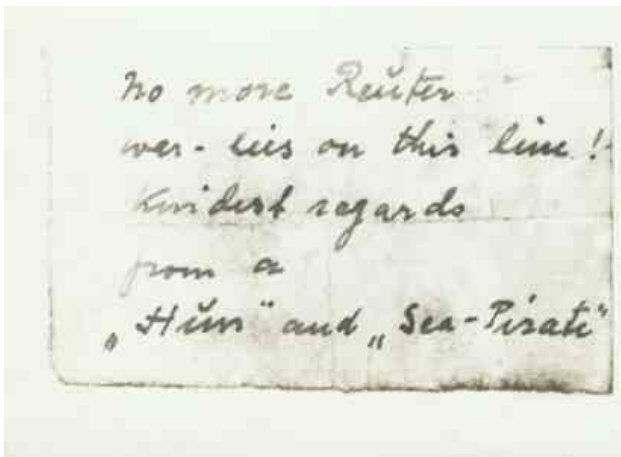 No more Reuter
war-lies on this line!
Kindest regards
from a
„Hun" and „Sea-Pirate"